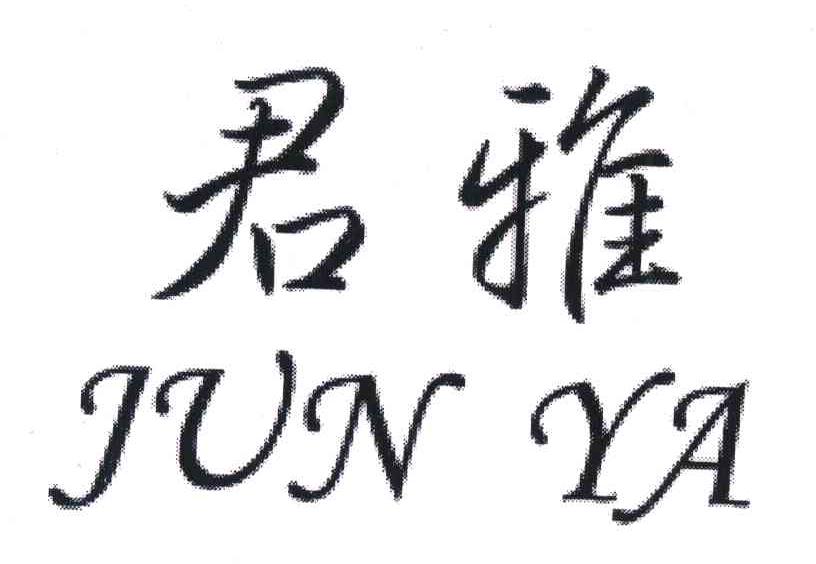 君雅
JUN YA